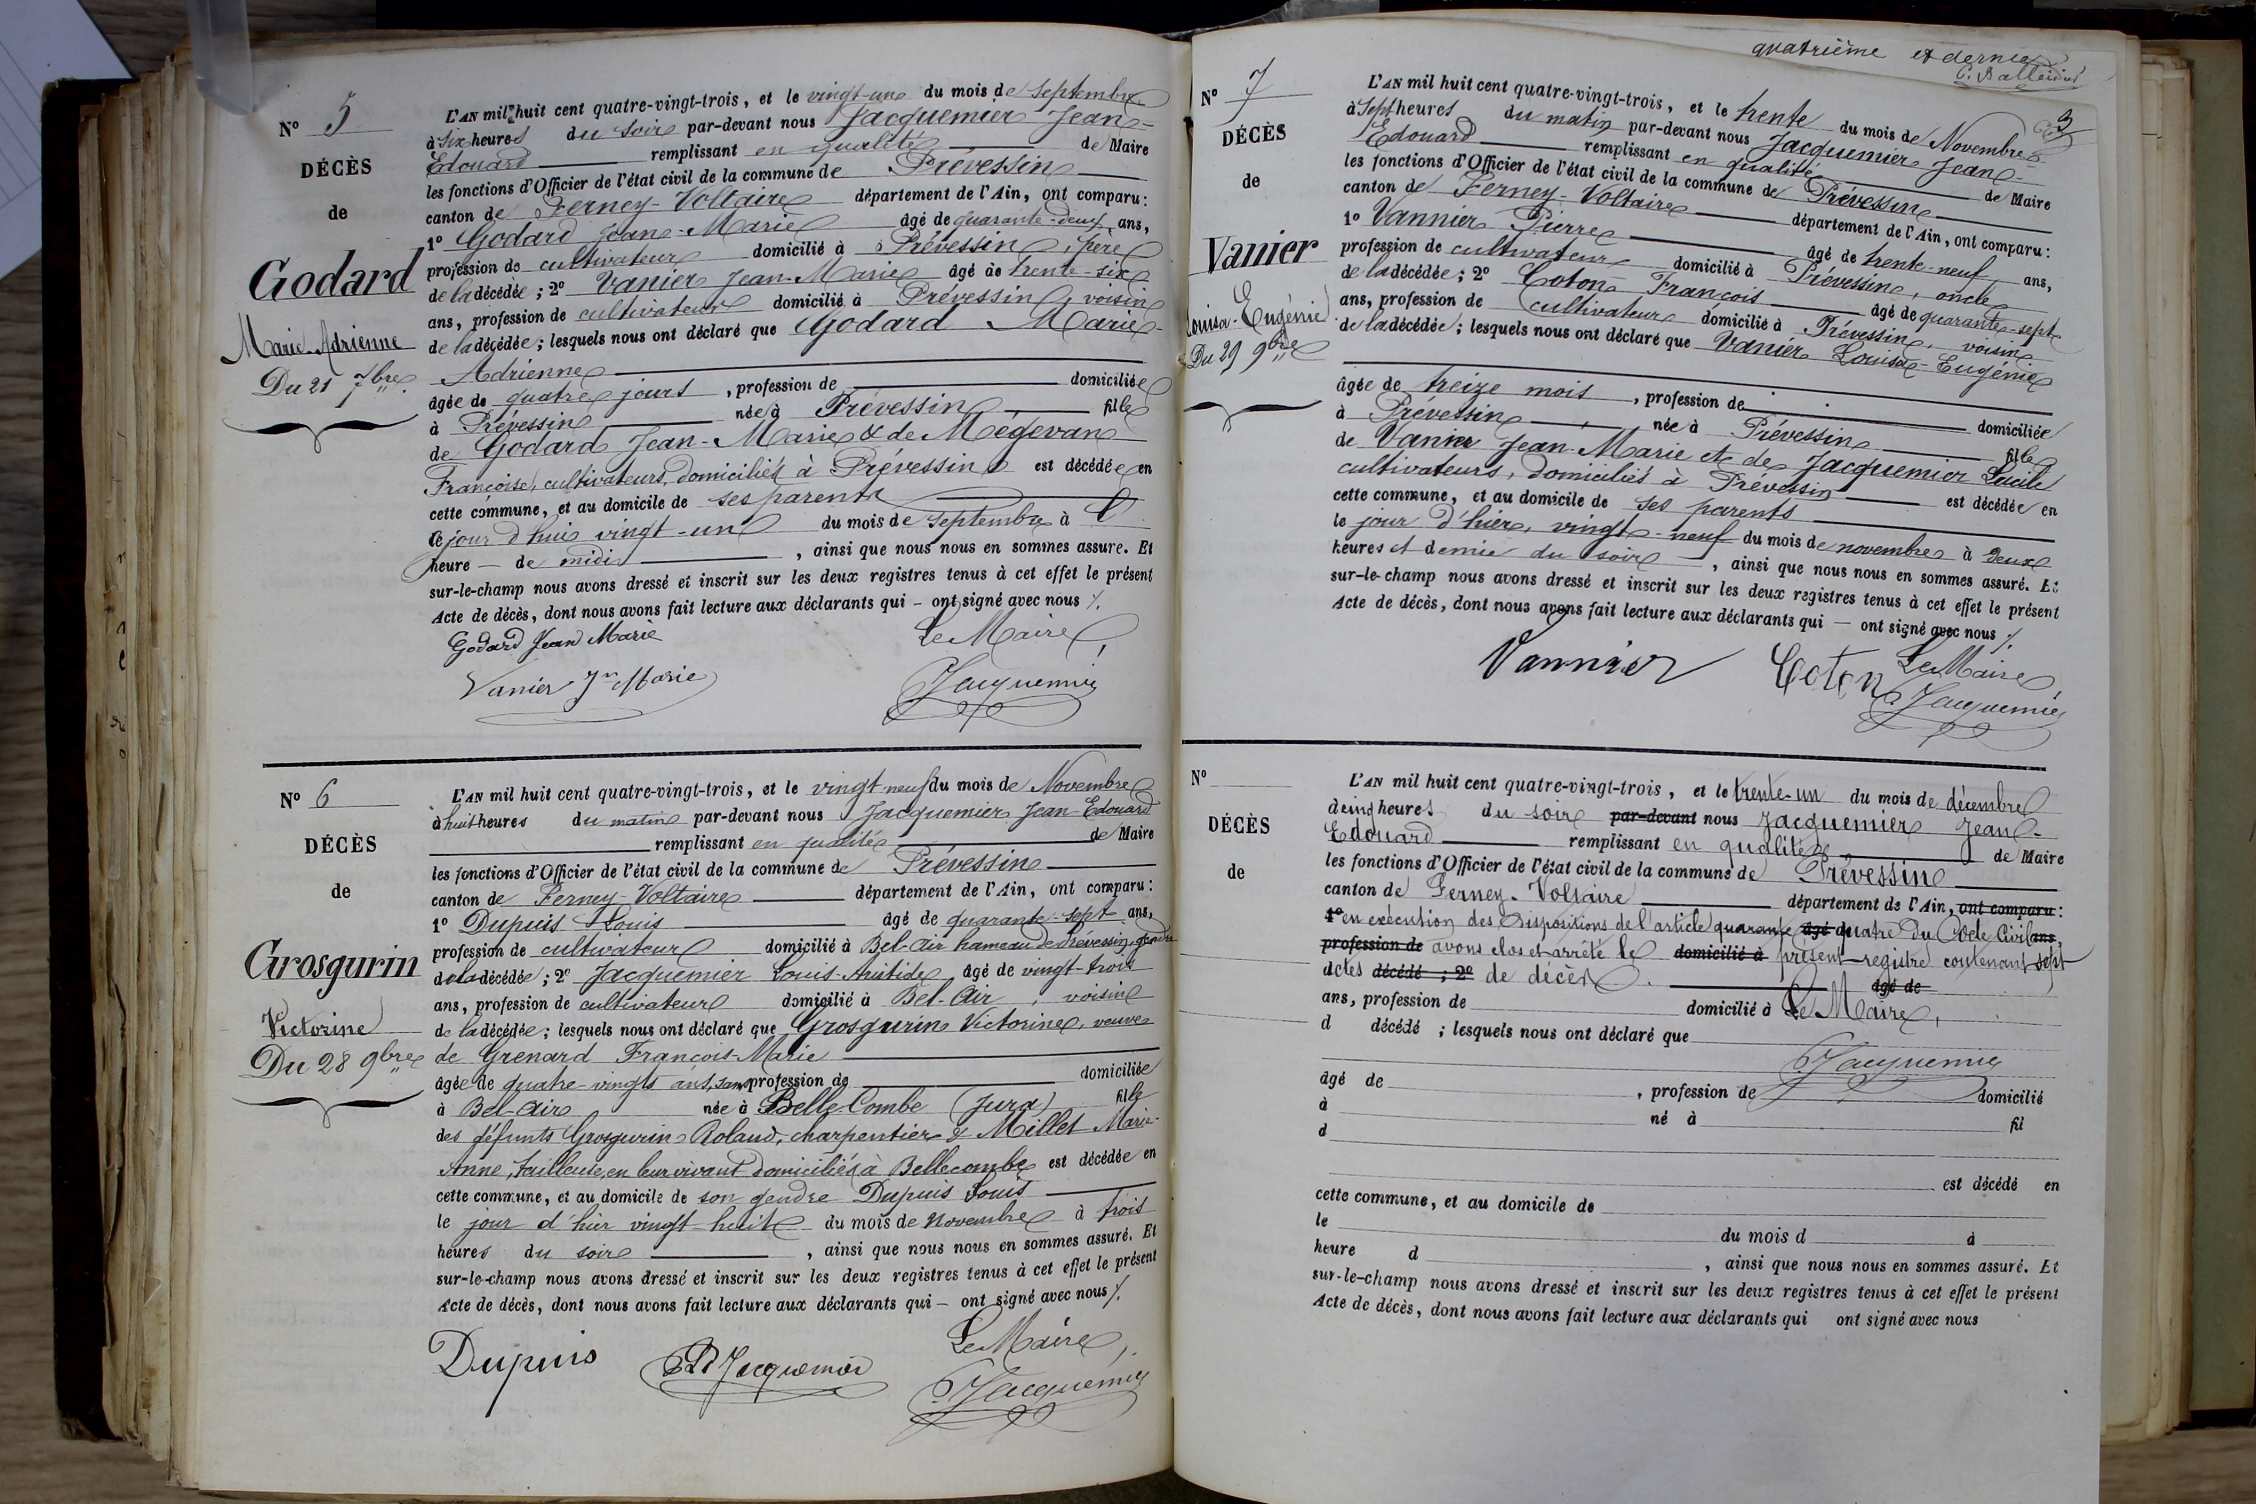 N° 5
DÉCÈS
de
Godard
Marie Adrienne
Du 21 7bre
L'AN mil huit cent quatre-vingt-trois, et le vingt-un du mois de Septembre
à six heures du soir par-devant nous Jacquemier Jean-
Edouard remplissant en qualité de Maire
les fonctions d'Officier de l'état civil de la commune de Prévessin
canton de Ferney-Voltaire département de l'Ain, ont comparu:
1° Godard Jean-Marie âgé de quarante-deux ans,
profession de cultivateur domicilié à Prévessin, père
de la décédée; 2° Vanier Jean-Marie âgé de trente-six
ans, profession de cultivateur domicilié à Prévessin, voisin
de la décédée; lesquels nous ont déclaré que Godard Marie-
Adrienne
âgée de quatre jours, profession de domiciliée
à Prévessin née à Prévessin fille
de Godard Jean-Marie & de Mégevan
Françoise, cultivateurs, domiciliés à Prévessin est décédée en
cette commune, et au domicile de ses parents
le jour d'hui vingt-un du mois de septembre à l'
heure de midi, ainsi que nous nous en sommes assuré. Et
sur-le-champ nous avons dressé et inscrit sur les deux registres tenus à cet effet le présent
Acte de décès, dont nous avons fait lecture aux déclarants qui – ont signé avec nous ⁒.
Godard Jean Marie Le Maire,
Vanier Jn Marie Jacquemier
N° 6
DÉCÈS
de
Grosgurin
Victorine
Du 28 9bre
L'AN mil huit cent quatre-vingt-trois, et le vingt neuf du mois de Novembre
à huit heures du matin par-devant nous Jacquemier Jean-Edouard
remplissant en qualité de Maire
les fonctions d'Officier de l'état civil de la commune de Prévessin
canton de Ferney-Voltaire département de l'Ain, ont comparu:
1° Dupuis Louis âgé de quarante-sept ans,
profession de cultivateur domicilié à Bel-Air hameau de Prévessin, gendre
de la décédée; 2° Jacquemier Louis-Aristide âgé de vingt-trois
ans, profession de cultivateur domicilié à Bel-Air, voisin
de la décédée; lesquels nous ont déclaré que Grosgurin Victorine, veuve
de Grenard François-Marie
âgée de quatre-vingts ans, sans profession de domiciliée
à Bel-Air née à Belle-Combe (Jura) fille
des défunts Grosgurin Roland, charpentier & Millet Marie-
Anne, tailleuse, en leur vivant domiciliés à Bellecombe est décédée en
cette commune, et au domicile de son gendre Dupuis Louis
le jour d'hier vingt-huit du mois de Novembre à trois
heures du soir, ainsi que nous nous en sommes assuré. Et
sur-le-champ nous avons dressé et inscrit sur les deux registres tenus à cet effet le présent
Acte de décès, dont nous avons fait lecture aux déclarants qui – ont signé avec nous ⁒.
Le Maire,
Dupuis Jacquemier Jacquemier
quatrième et dernier
3
N° 7
DÉCÈS
de
Vanier
Louisa-Eugénie
Du 29 9bre
L'AN mil huit cent quatre-vingt-trois, et le trente du mois de Novembre
à sept heures du matin par-devant nous Jacquemier Jean-
Edouard remplissant en qualité de Maire
les fonctions d'Officier de l'état civil de la commune de Prévessin
canton de Ferney-Voltaire département de l'Ain, ont comparu:
1° Vannier Pierre âgé de trente-neuf ans,
profession de cultivateur domicilié à Prévessin, oncle
de la décédée; 2° Coton François âgé de quarante-sept
ans, profession de cultivateur domicilié à Prévessin, voisin
de la décédée; lesquels nous ont déclaré que Vanier Louisa-Eugénie
âgée de treize mois, profession de domiciliée
à Prévessin, née à Prévessin fille
de Vanier Jean-Marie et de Jacquemier Lucile
cultivateurs, domiciliés à Prévessin est décédée en
cette commune, et au domicile de ses parents
le jour d'hier, vingt-neuf du mois de novembre à deux
heures et demie du soir, ainsi que nous nous en sommes assuré. Et
sur-le-champ nous avons dressé et inscrit sur les deux registres tenus à cet effet le présent
Acte de décès, dont nous avons fait lecture aux déclarants qui — ont signé avec nous ⁒.
Vannier Coton Le Maire,
Jacquemier
N°
DÉCÈS
de
L'AN mil huit cent quatre-vingt-trois, et le trente-un du mois de décembre
à cinq heures du soir par-devant nous Jacquemier Jean-
Edouard remplissant en qualité de Maire
les fonctions d'Officier de l'état civil de la commune de Prévessin
canton de Ferney-Voltaire département de l'Ain, ont comparu:
1° en exécution des dispositions de l'article quarante âgé quatre du Code Civil ans,
profession de avons clos et arrêté le domicilié à présent registre contenant sept
actes décédé; 2° de décès. âgé de
ans, profession de domicilié à Le Maire,
d décédé ; lesquels nous ont déclaré que
Jacquemier
âgé de , profession de domicilié
à né à fil
d
est décédé en
cette commune, et au domicile de
le du mois d à
heure d , ainsi que nous nous en sommes assuré. Et
sur-le-champ nous avons dressé et inscrit sur les deux registres tenus à cet effet le présent
Acte de décès, dont nous avons fait lecture aux déclarants qui ont signé avec nous